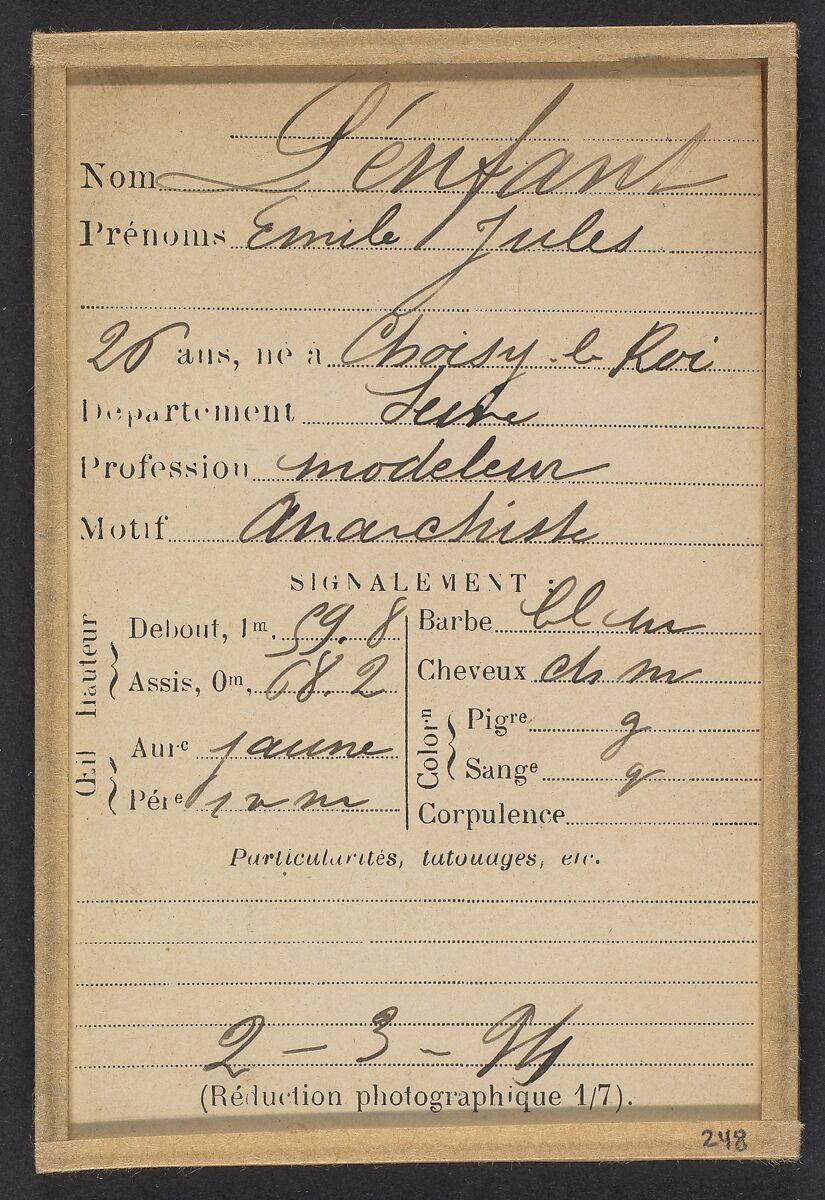 Nom L'énfant
Prénoms Emile Jules
26 ans, né à Choisy le Roi
Département Seine
Profession modeleur
Motif Anarchiste
SIGNALEMENT :
Œil hauteur
Debout, 1m, 59.8
Assis, 0m, 68.2
Aurᶜ jaune
Pérᵉ j v m
Barbe bl
Cheveux ch m
Colorⁿ
Pigʳᵉ g
Sangᵉ g
Corpulence
Particularités, tatouages, etc.
2 - 3 - 94
(Réduction photographique 1/7).
248